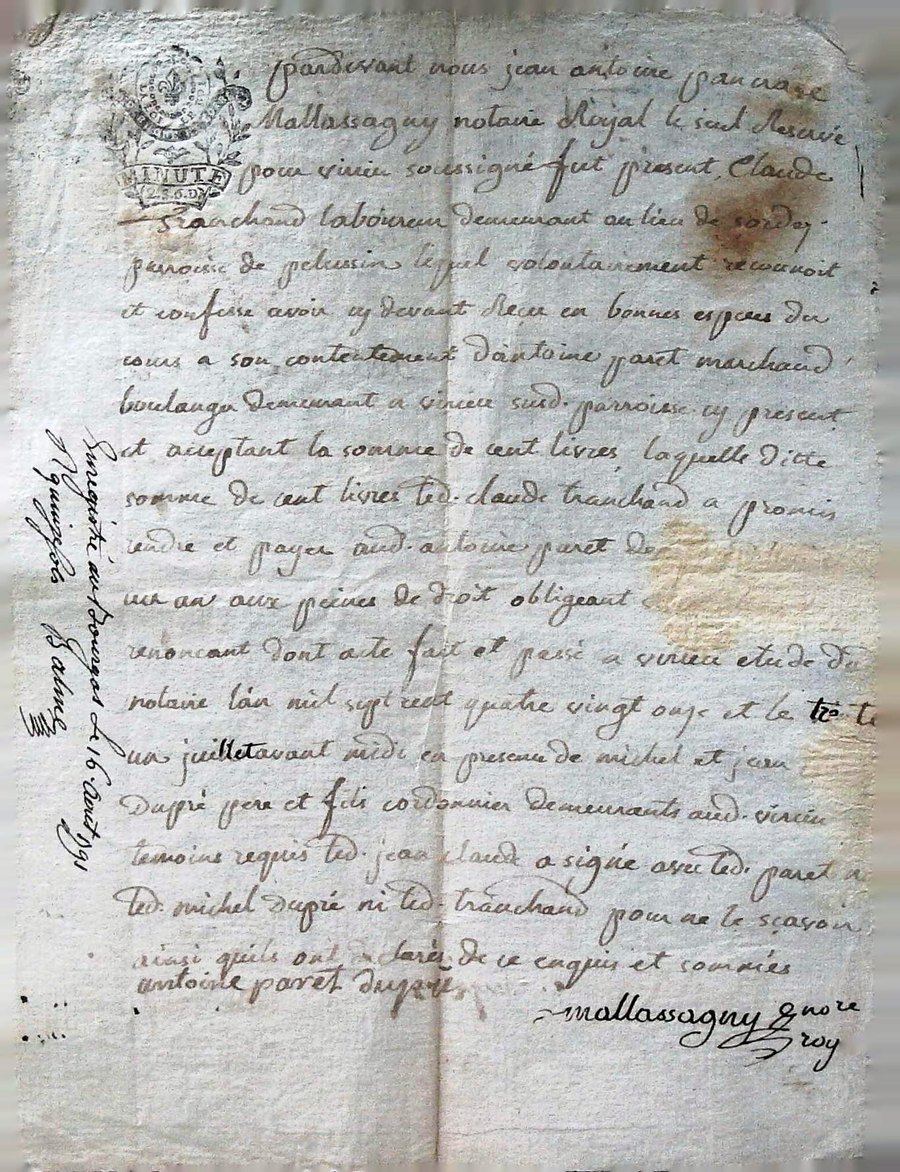 MINUTE
pardevant nous jean antoine pancrace
Mallassagny notaire Royal le seul Reservé
pour virieu soussigné fut present, Claude
Tranchand laboureur demeurant au lieu de
parroisse de pelussin lequel volontairement reconnoit
et confesse avoir cy devant Reçu en bonnes especes du
cours a son contentement d'antoine paret marchand
boulanger demeurant a virieu susd. parroisse cy present
et acceptant la somme de cent livres, laquelle ditte
somme de cent livres led. claude tranchand a promis
rendre et payer aud. antoine paret
un an aux peines de droit obligeant
renoncant dont acte fait et passé a virieu etude du
notaire l'an mil sept cent quatre vingt onze et le
un juillet avant midi en presence de michel et jean
Dupré pere et fils cordonnier demeurants aud. virieu
temoins requis led. jean claude a signé avec led. paret
led. michel Dupré ni led. tranchand pour ne le sçavoir
ainsi quils ont declarés de ce enquis et sommés
antoine paret dupré
mallassagny nore
roy
Enregistré au Bourgas Le 16. Aout 1791
R quinze sols Balme